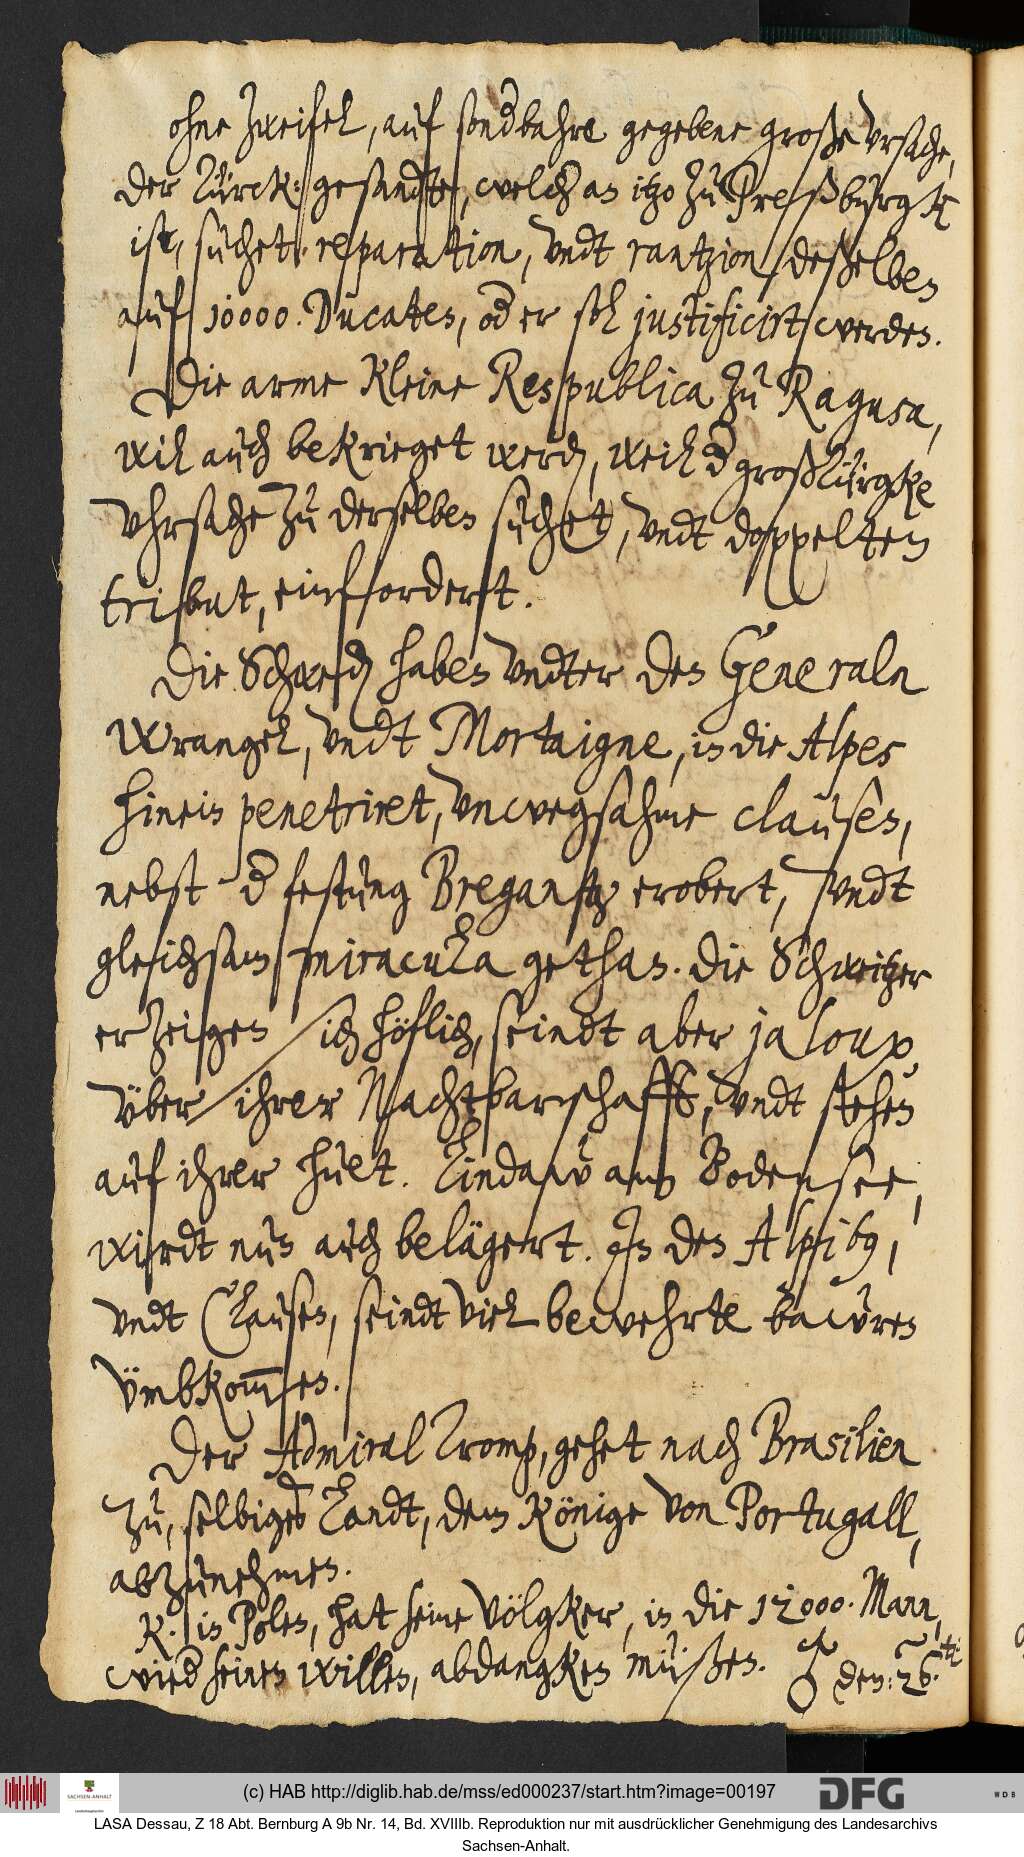 ohne Zweifel, auf sonderbahre gegebene große Vrsache,
der Türck: gesandte, welcher itzo zu Preßburgk
ist, suchet reparation, vndt rantzion deßelben
auf 10000. Ducaten, oder er sol justificirt werden.
Die arme kleine Respublica zu Ragusa,
wil auch bekrieget werden, weil der großTürgke
Vhrsache zu derselben suchet, vndt doppelten
tribut, einfforderst.
Die Schweden haben vndter den Generaln
Wrangel, vndt Mortaigne, in die Alpes
hinein penetriret, vnwegsahme clausen,
nebst der festung Bregantz erobert, vndt
gleichsam miracula gethan. Die Schweitzer
erzeigen sich höflich, seindt aber jaloux
über ihrer Nachtbarschafft, vndt stehen
auf ihrer huet. Lindaw am Bodensee,
wirdt nun auch belägert. In den Alpibus,
vndt Clausen, seindt viel bewehrte bawren
ümbkommen.
Der Admiral Tromp, gehet nach Brasilien
zu, selbiges Landt, dem Könige von Portugall,
abzunehmen.
K. in Polen, hat seine völgker, in die 12000. Mann,
wieder seinen willen, abdangken müßen. ♂ den: 26.
(c) HAB http://diglib.hab.de/mss/ed000237/start.htm?image=00197
SACHSEN-ANHALT
DFG
WDB
LASA Dessau, Z 18 Abt. Bernburg A 9b Nr. 14, Bd. XVIIIb. Reproduktion nur mit ausdrücklicher Genehmigung des Landesarchivs
Sachsen-Anhalt.